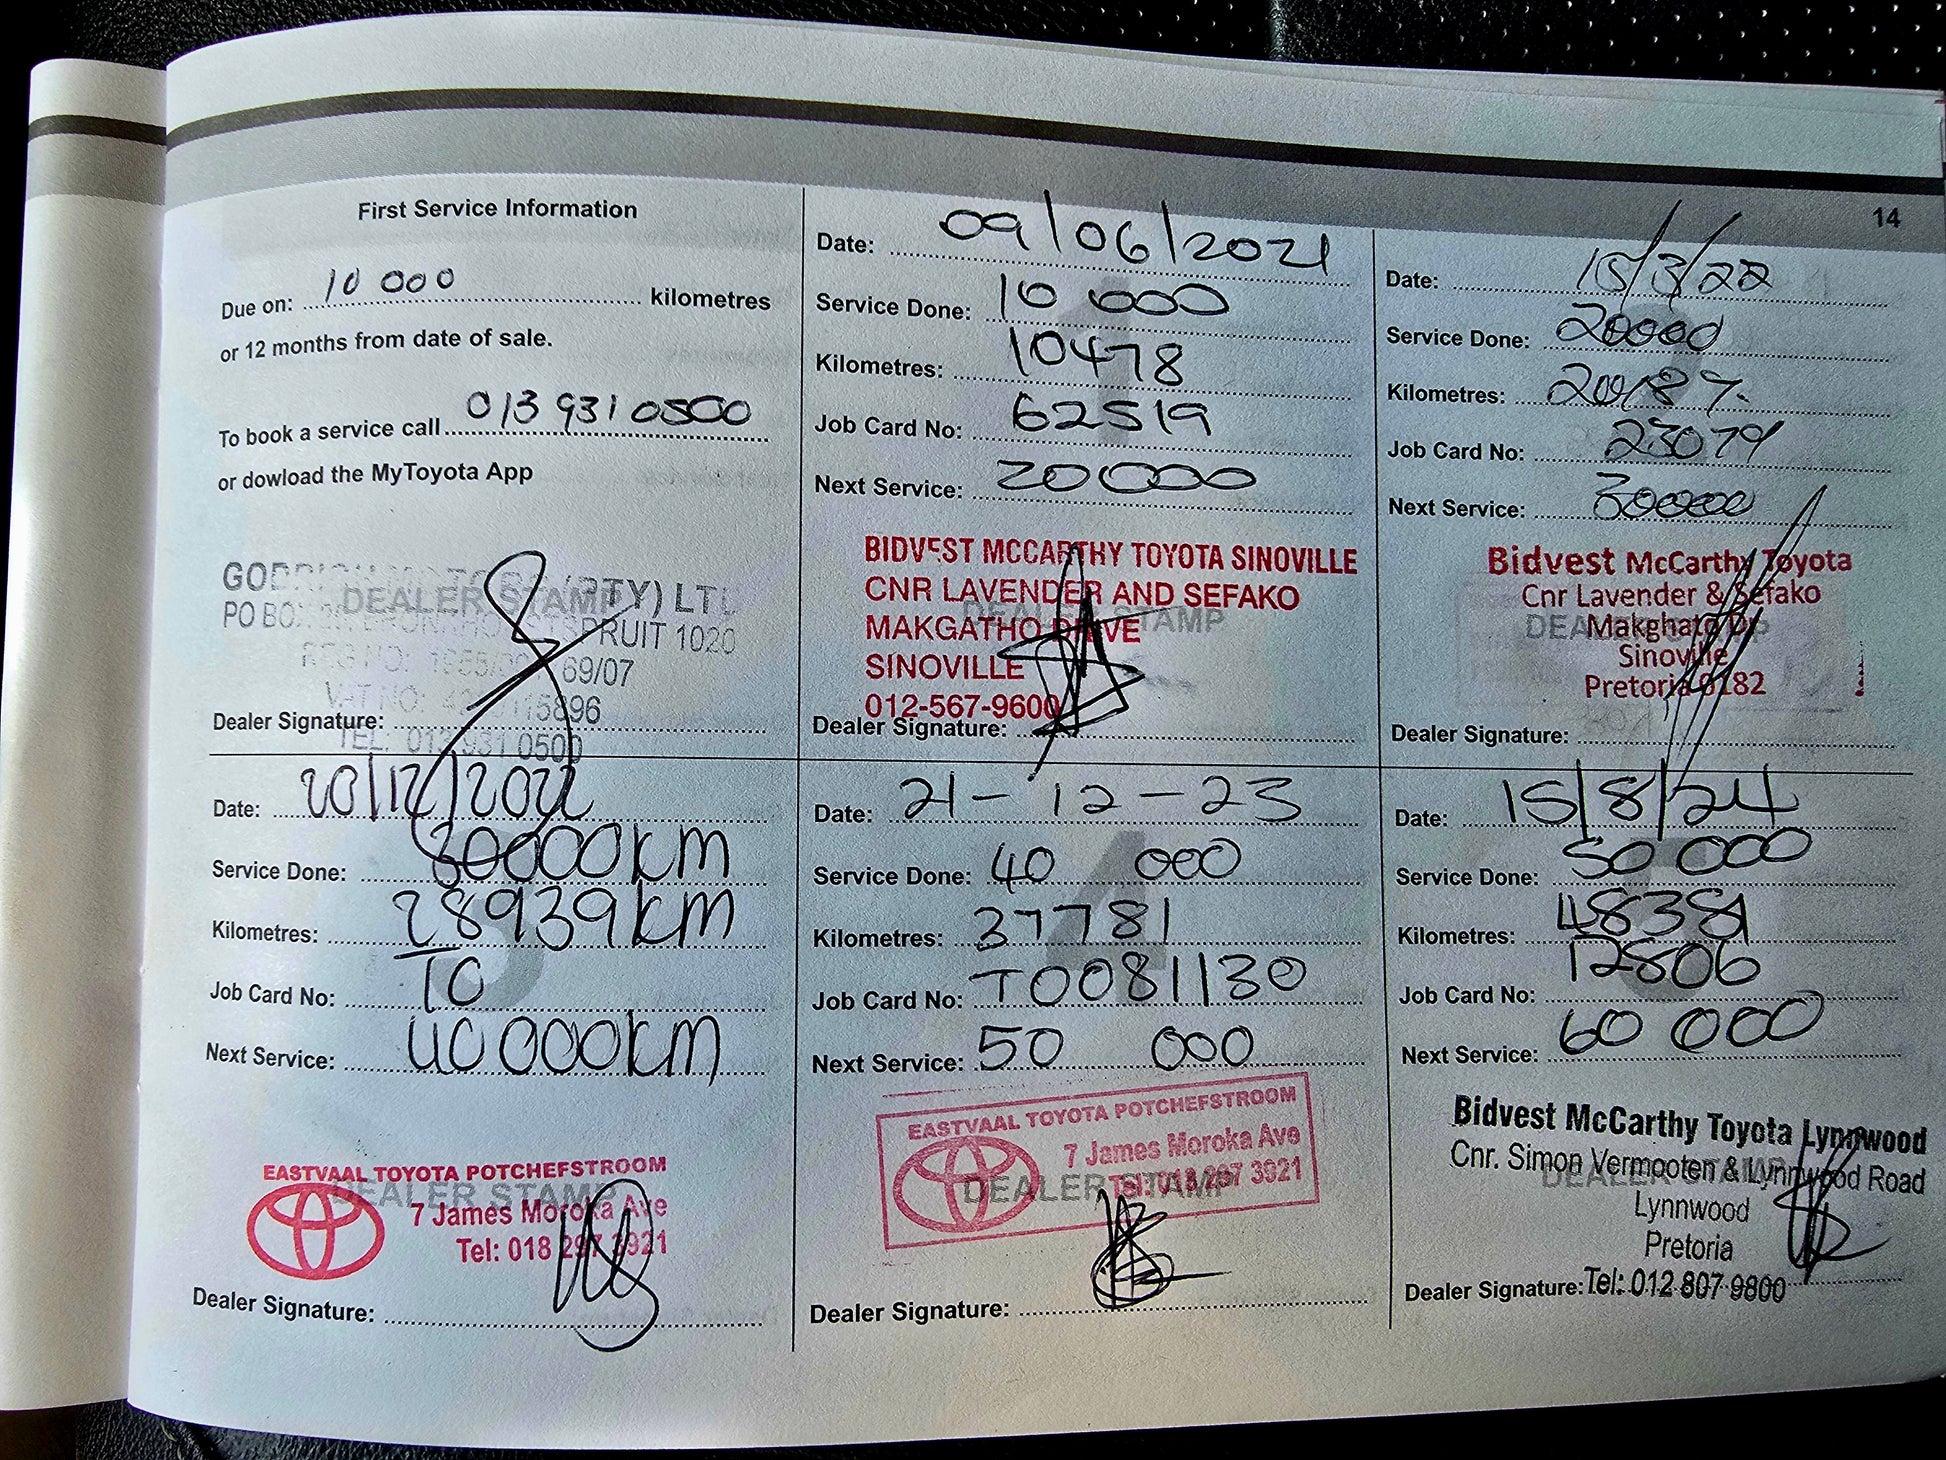 14
First Service Information
Due on: 10 000 kilometres
or 12 months from date of sale.
To book a service call 013 931 0500
or dowload the MyToyota App
DEALER STAMP
(PTY) LTD
PO BO
SPRUIT 1020
69/07
VAT NO:
5896
TEL: 013 931 0500
Dealer Signature:
Date: 09/06/2021
Service Done: 10 000
Kilometres: 10478
Job Card No: 62519
Next Service: 20000
BIDVEST MCCARTHY TOYOTA SINOVILLE
CNR LAVENDER AND SEFAKO
DEALER STAMP
MAKGATHO DRIVE
SINOVILLE
012-567-9600
Dealer Signature:
Date: 15/3/22
Service Done: 20000
Kilometres: 20187
Job Card No: 23079
Next Service: 30000
Bidvest McCarthy Toyota
Cnr Lavender & Sefako
DEALER STAMP
Makghato Dr
Sinoville
Pretoria 0182
Dealer Signature:
Date: 20/12/2022
Service Done: 30000km
Kilometres: 28939km
Job Card No: TO
Next Service: 40 000km
EASTVAAL TOYOTA POTCHEFSTROOM
DEALER STAMP
7 James Moroka Ave
Tel: 018 297 3921
Dealer Signature:
Date: 21-12-23
4
Service Done: 40 000
Kilometres: 37781
Job Card No: T0081130
Next Service: 50 000
EASTVAAL TOYOTA POTCHEFSTROOM
7 James Moroka Ave
DEALER STAMP
Tel: 018 297 3921
Dealer Signature:
Date: 15/8/24
Service Done: 50 000
Kilometres: 48381
Job Card No: 12806
Next Service: 60 000
Bidvest McCarthy Toyota Lynnwood
Cnr. Simon Vermooten & Lynnwood Road
DEALER STAMP
Lynnwood
Pretoria
Dealer Signature: Tel: 012 807 9800